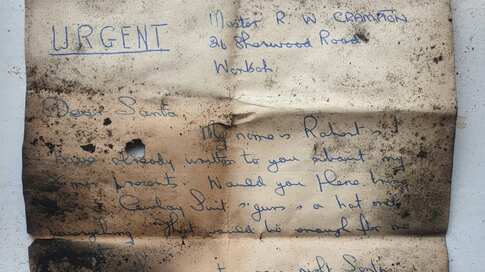 URGENT
Master R W CRAMPTON
36 Sherwood Road
Dear Santa
My name is Robert &
have already written to you about my
presents. Would you please bring
Cowboy Suit & guns & a hat
everything that would be enough for me
night Santa